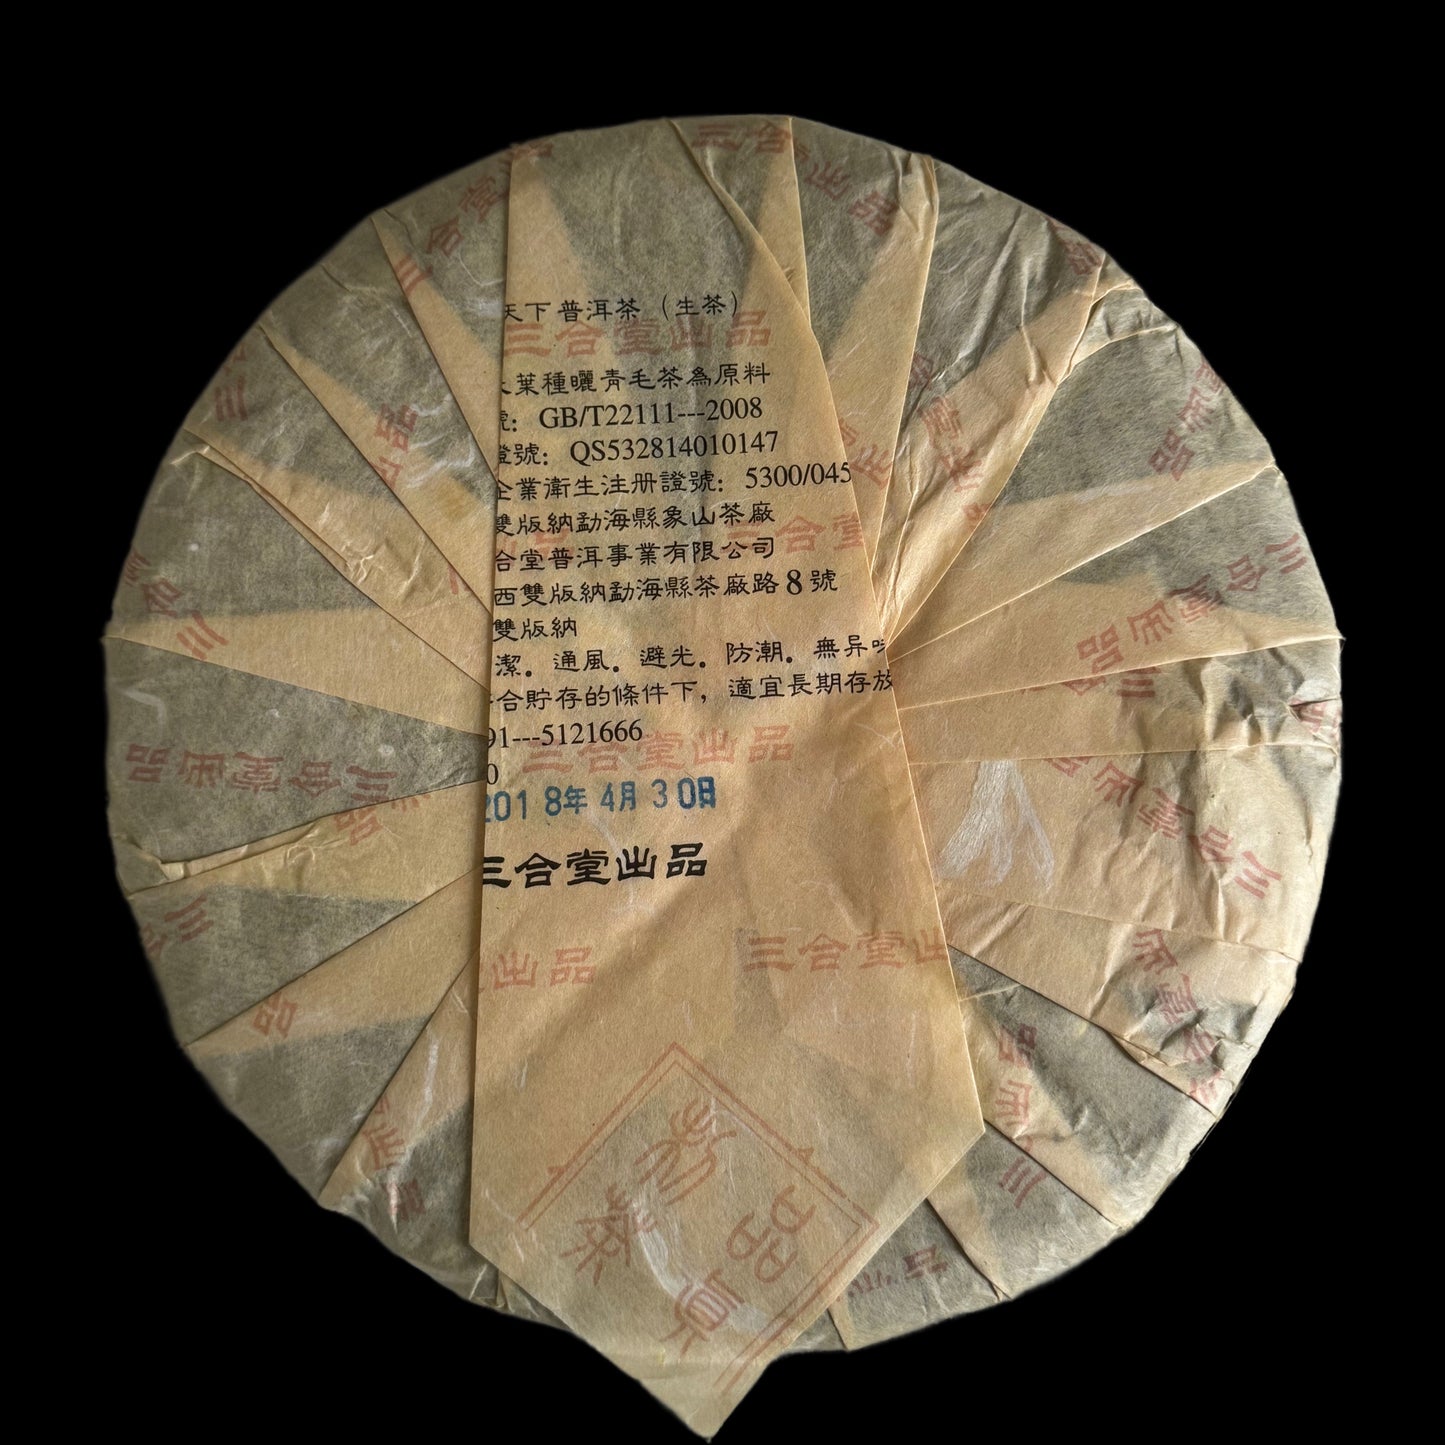 天下普洱茶（生茶）
三合堂出品
葉種曬青毛茶為原料
號：GB/T22111---2008
證號：QS532814010147
企業衛生注册證號：5300/045
雙版納勐海縣象山茶廠
合堂普洱事業有限公司
西雙版納勐海縣茶廠路8號
雙版納
潔。通風。避光。防潮。無异味
合貯存的條件下，適宜長期存放
91---5121666
三合堂出品
0
2018年4月30日
三合堂出品
出品
三合堂出